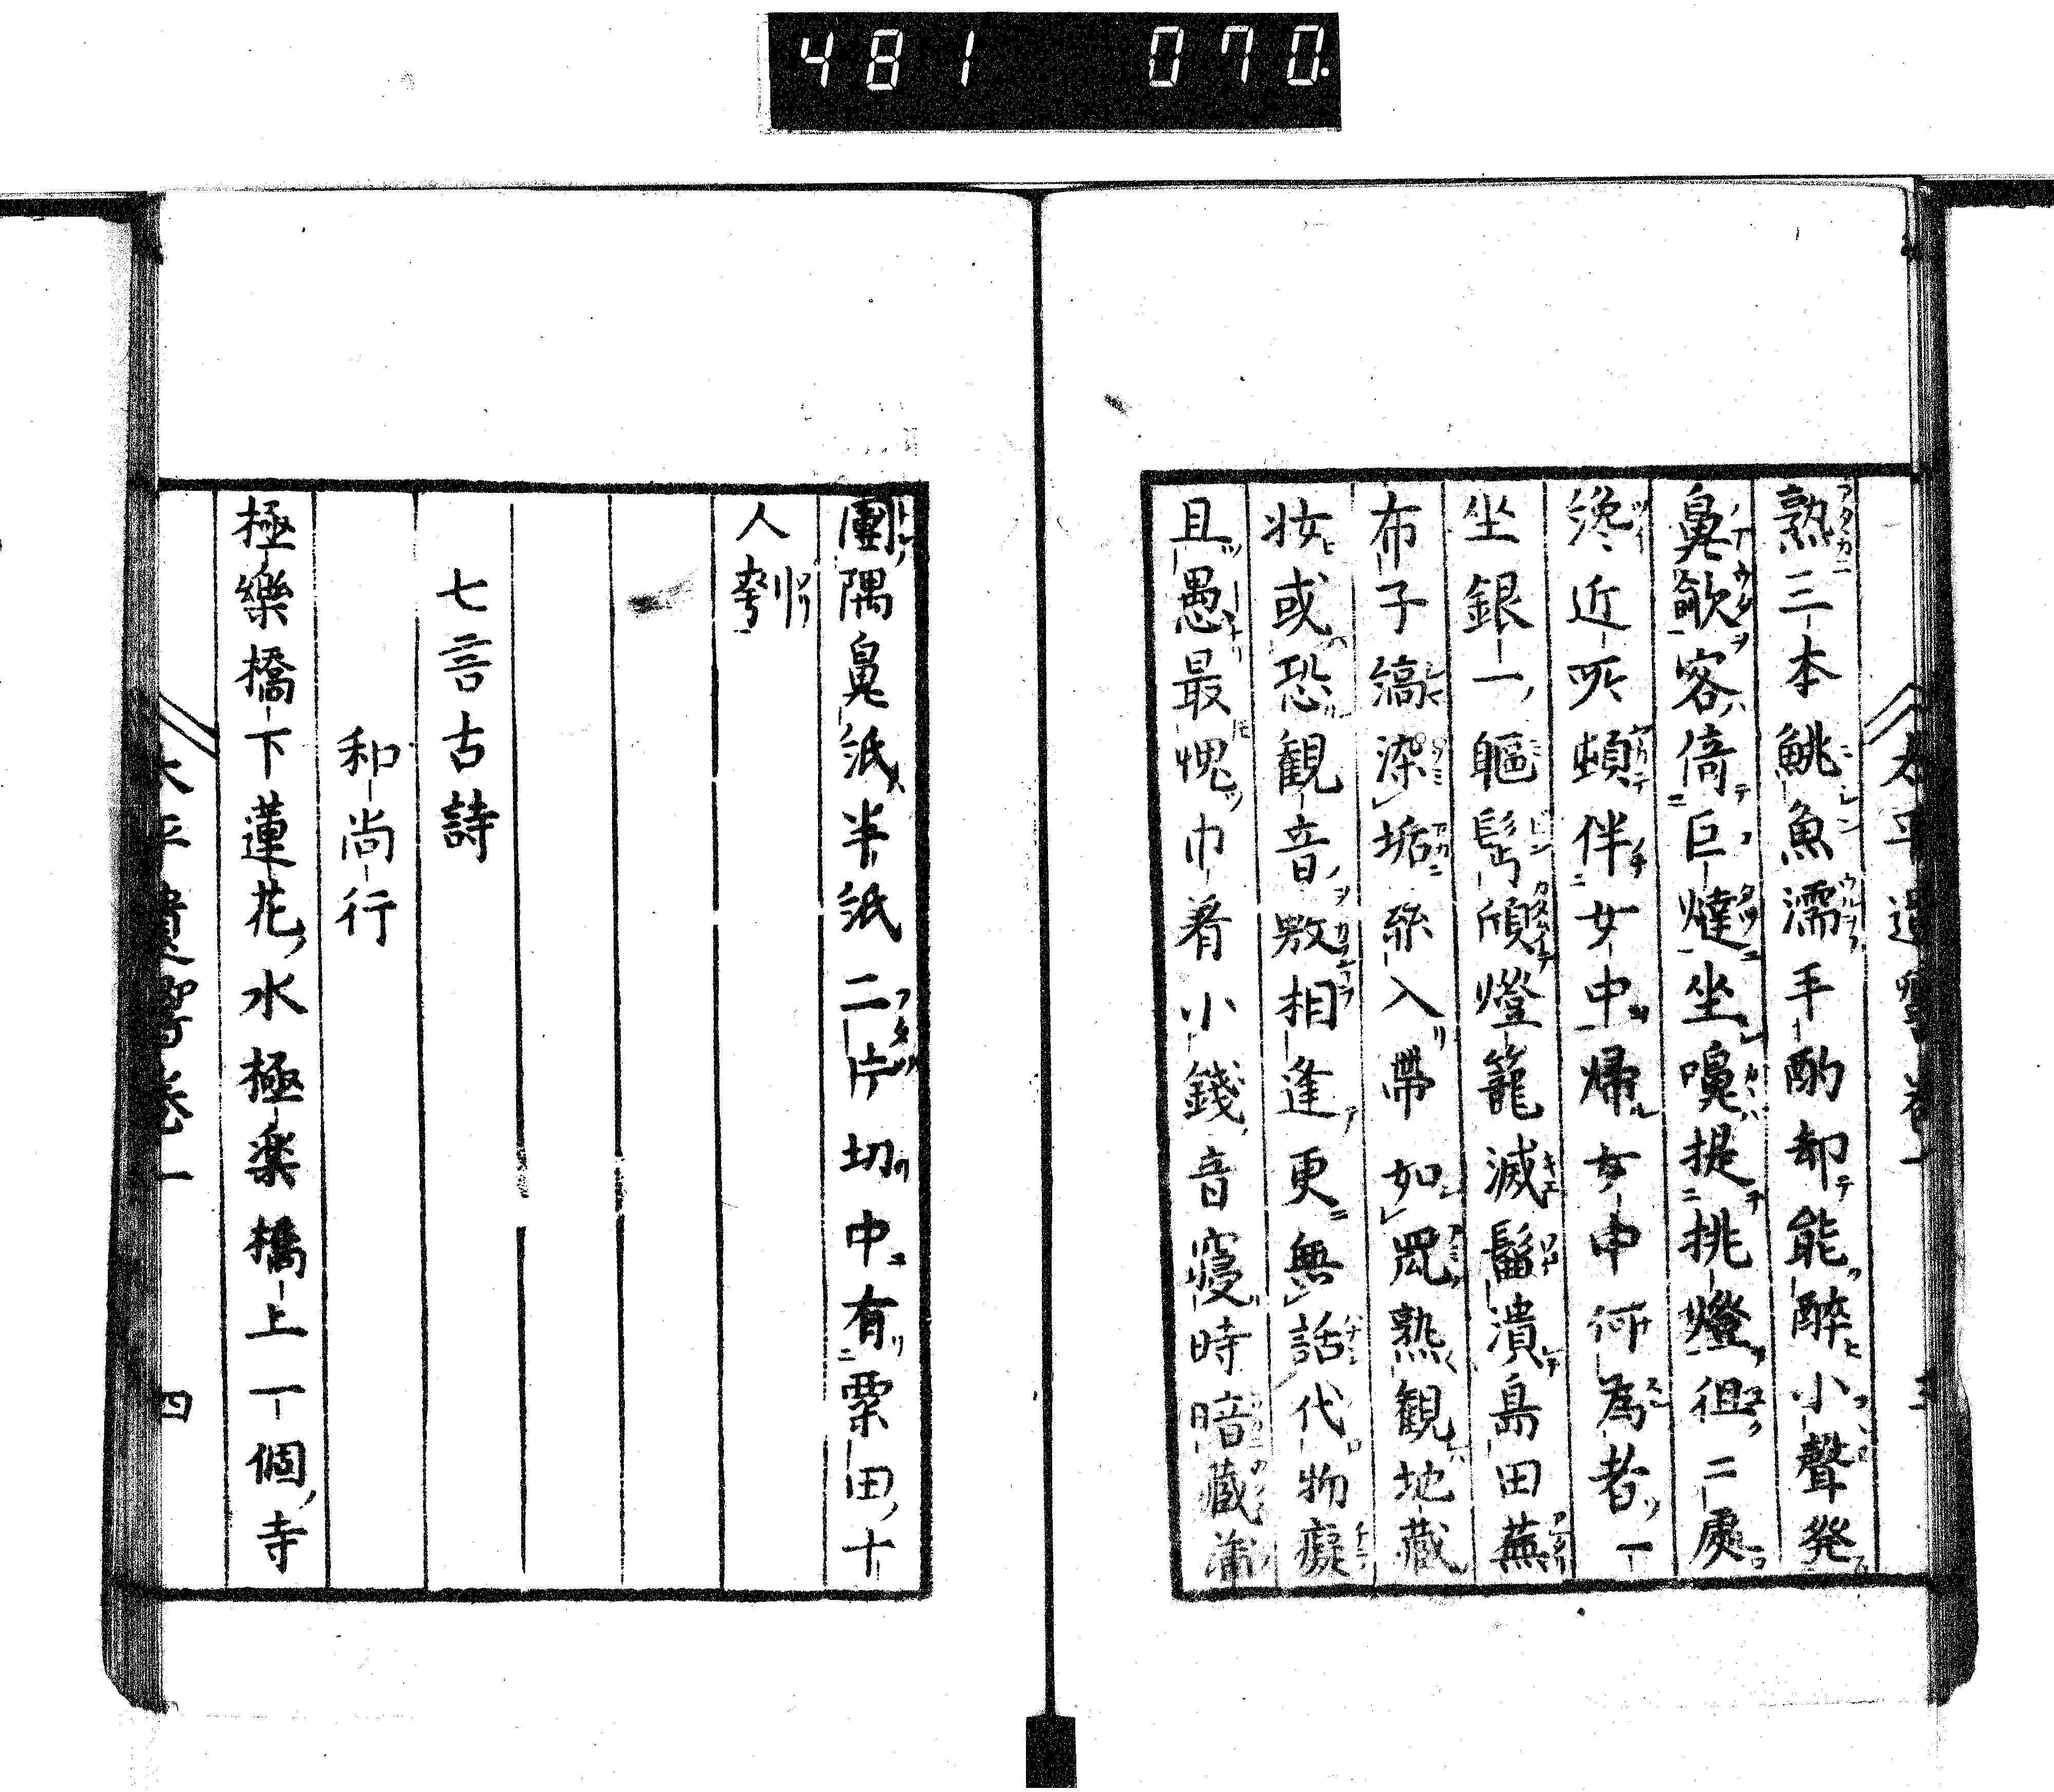 481 070.
太平遺響卷一 三
熟三本鮡魚濡手酌却能醉小聲発
鼻歌客倚巨燵坐嚊提挑燈徂二處
近所頓伴女中帰女中何為者一
坐銀一軀髩頎燈籠滅髷潰島田蕪
布子縞染垢絲入帶如罠熟観地藏
妝或恐観音敷相逢更無話代物癡
且愚最愧巾着小錢音寝時暗蔵蒲
團隅鼻紙半紙二片切中有粟田十
人
七言古詩
和尚行
極樂橋下蓮花水極楽橋上一個寺
太平遺響卷一 四